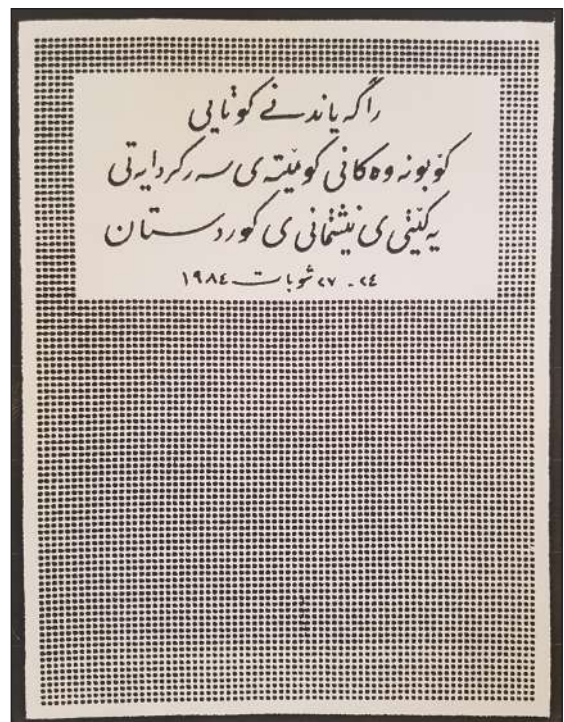 راگەیاندنی کۆتایی
کۆبونەوەکانی کۆمیتەی سەرکردایەتی
یەکێتی ی نیشتمانی ی کوردستان
٢٤ - ٢٧ شوبات ١٩٨٤